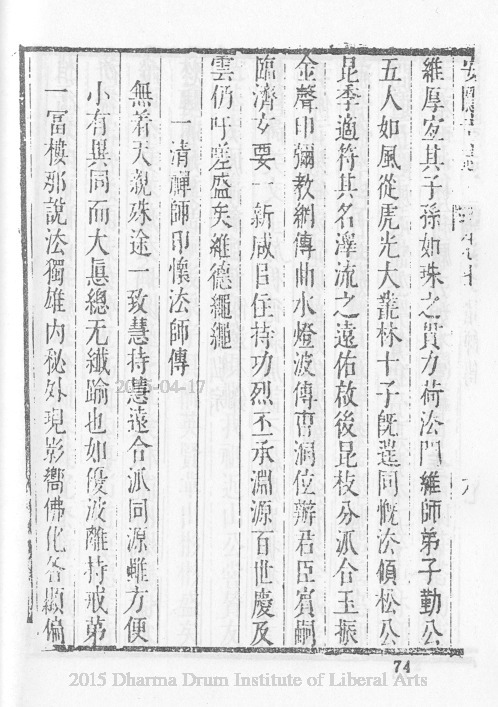 維厚宜其子孫如珠之貫力荷法門維師弟子勤公
五人如風從虎光大叢林十子旣選同慨法傾松公
昆季適符其名澤流之遠佑啟後昆枝分派合玉振
金聲印彌教網傳曲水燈波傳曹洞位辯君臣賓嗣
臨濟玄要一新咸曰住持功烈丕承淵源百世慶及
雲仍吁嗟盛矣維德繩繩
一清禪師印懷法師傳
無着天親殊途一致慧持慧遠合派同源雖方便
小有異同而大眞總无纖踰也如優波離持戒第
一冨樓那說法獨雄內秘外現影嚮佛化各顯偏
74
2015-04-17
2015 Dharma Drum Institute of Liberal Arts